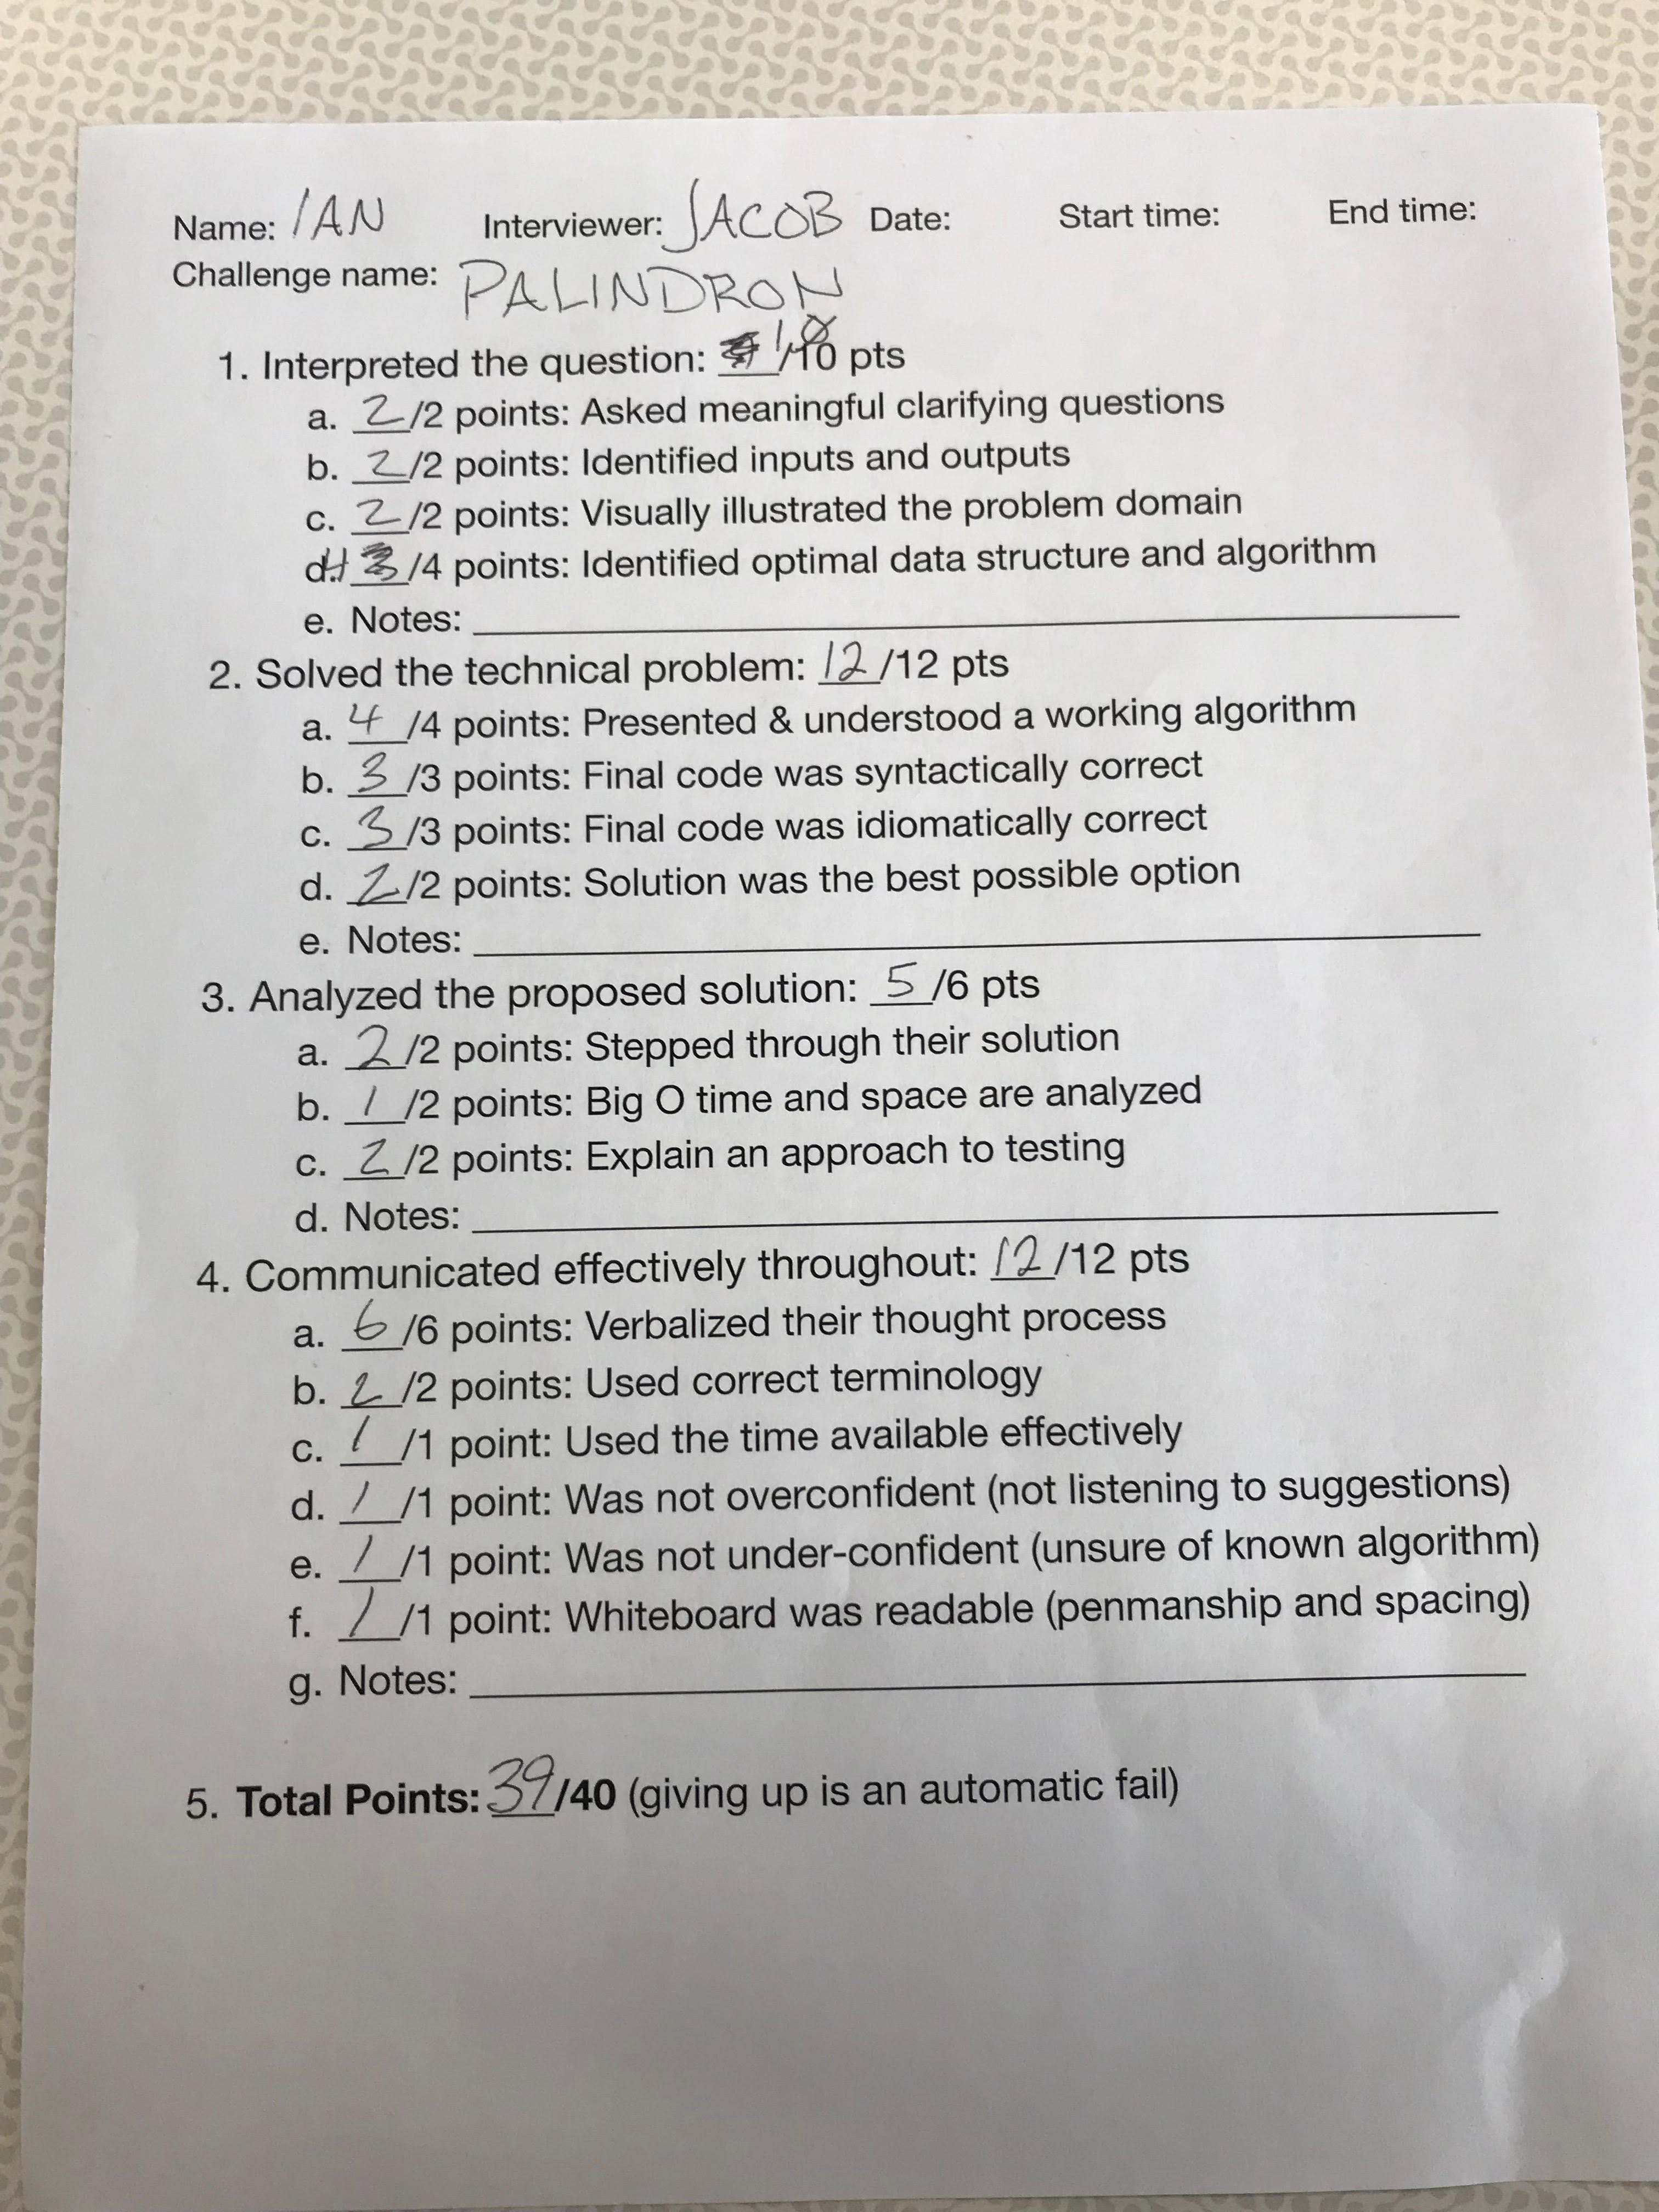 Name: IAN Interviewer: JACOB Date: Start time: End time:
Challenge name: PALINDROM
1. Interpreted the question: 10/10 pts
a. 2/2 points: Asked meaningful clarifying questions
b. 2/2 points: Identified inputs and outputs
c. 2/2 points: Visually illustrated the problem domain
d. 4/4 points: Identified optimal data structure and algorithm
e. Notes:
2. Solved the technical problem: 12/12 pts
a. 4/4 points: Presented & understood a working algorithm
b. 3/3 points: Final code was syntactically correct
c. 3/3 points: Final code was idiomatically correct
d. 2/2 points: Solution was the best possible option
e. Notes:
3. Analyzed the proposed solution: 5/6 pts
a. 2/2 points: Stepped through their solution
b. 1/2 points: Big O time and space are analyzed
c. 2/2 points: Explain an approach to testing
d. Notes:
4. Communicated effectively throughout: 12/12 pts
a. 6/6 points: Verbalized their thought process
b. 2/2 points: Used correct terminology
c. 1/1 point: Used the time available effectively
d. 1/1 point: Was not overconfident (not listening to suggestions)
e. 1/1 point: Was not under-confident (unsure of known algorithm)
f. 1/1 point: Whiteboard was readable (penmanship and spacing)
g. Notes:
5. Total Points: 39/40 (giving up is an automatic fail)